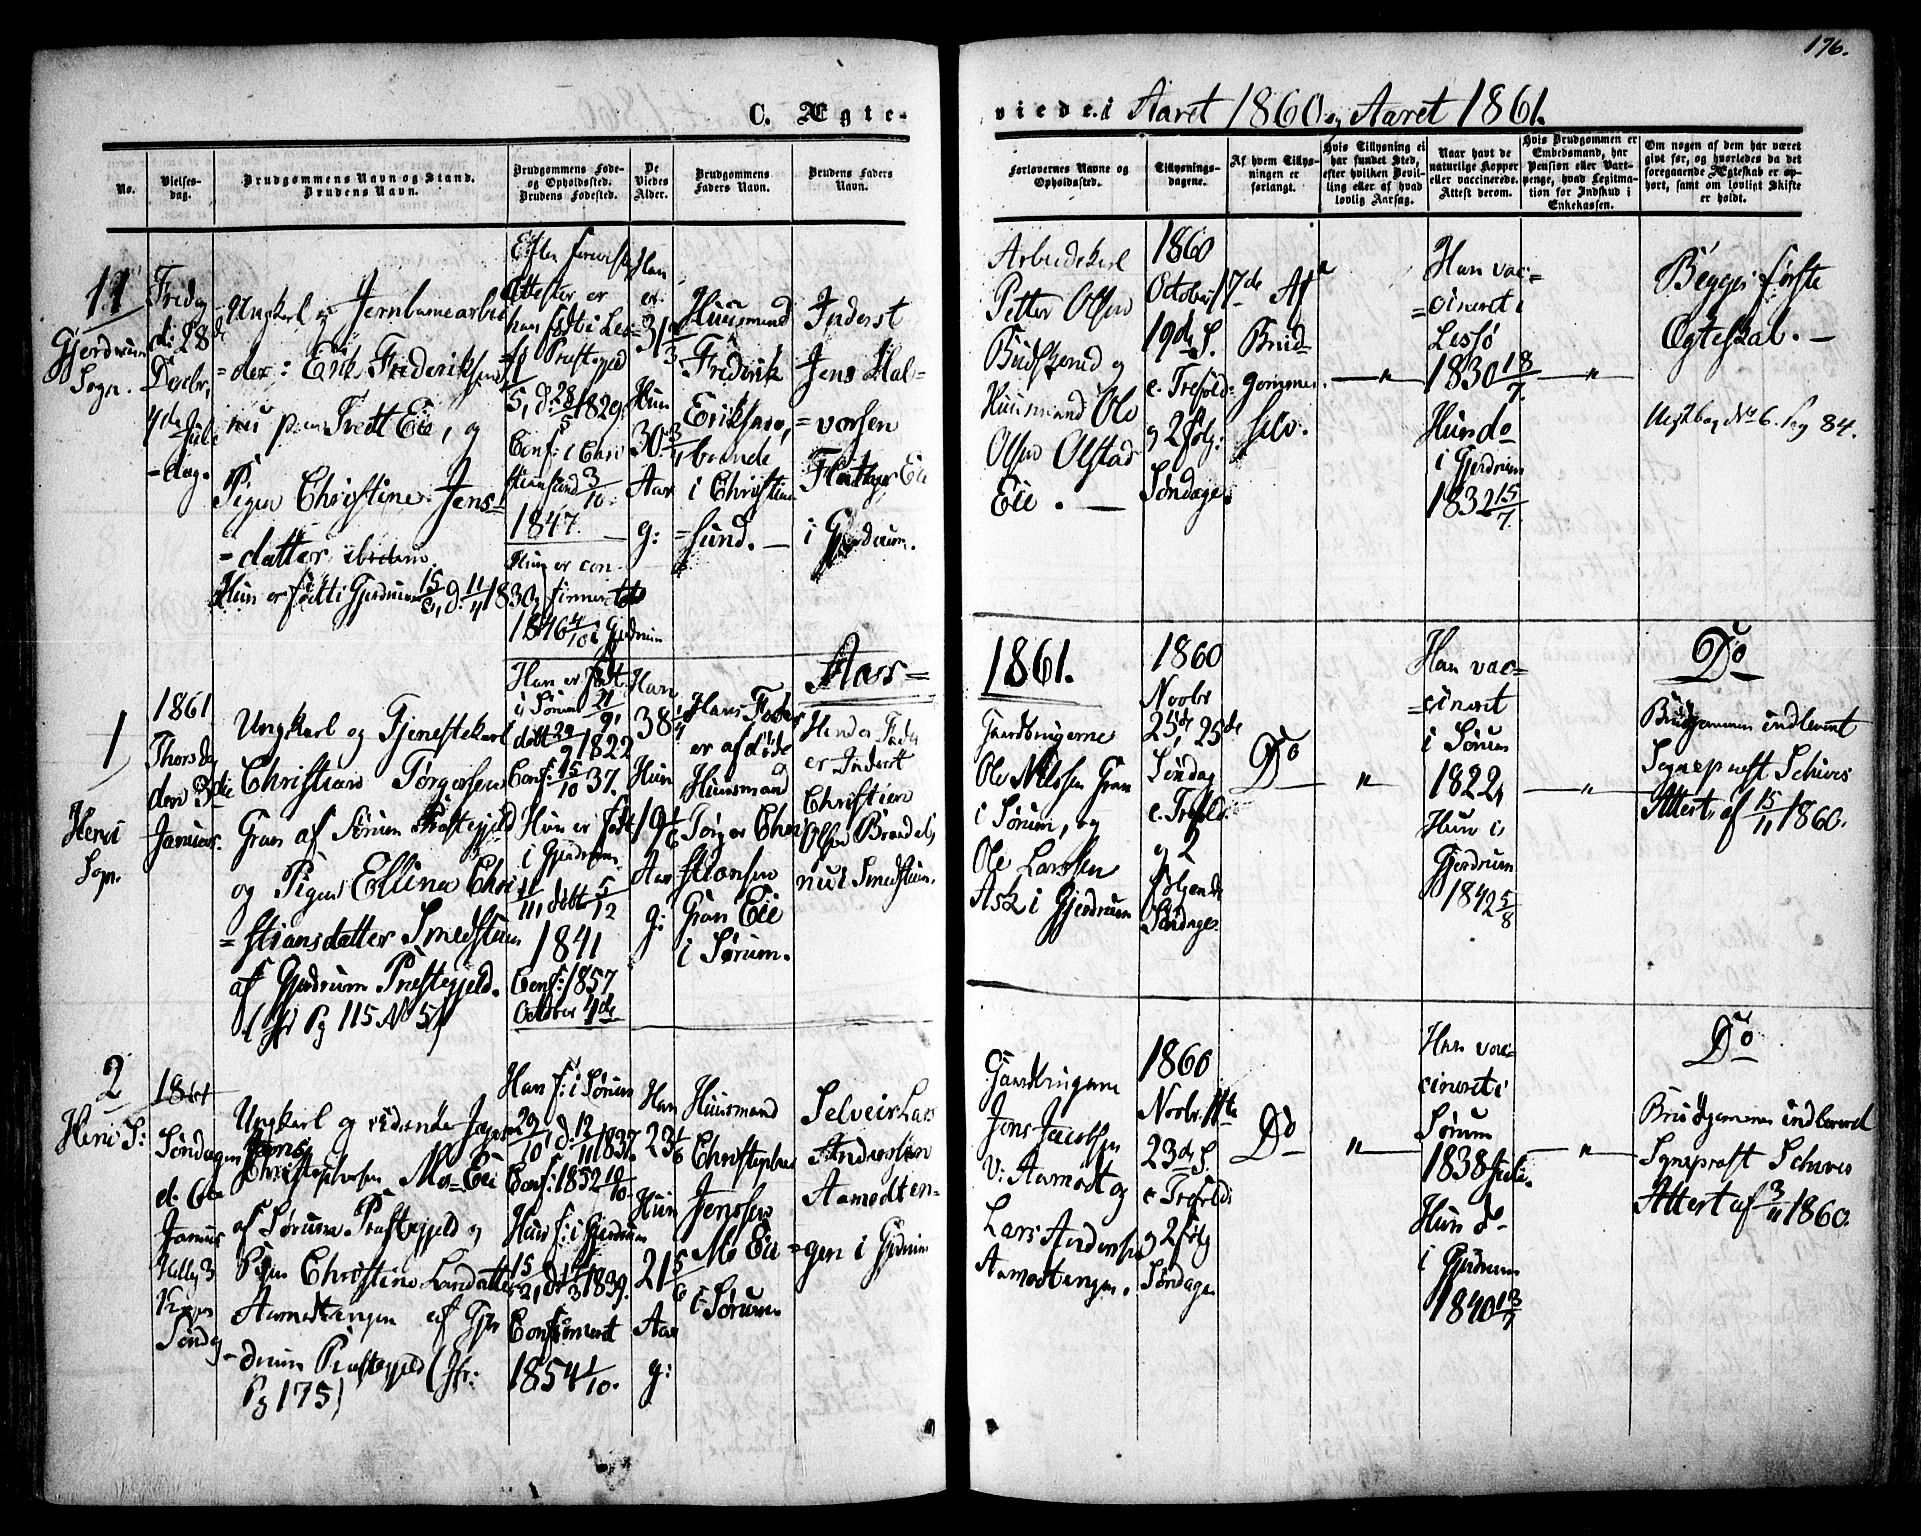 176.
C. Ægte-
viede. i Aaret 1860 og Aaret 1861.
No.
Vielses-
dag.
Brudgommens Navn og Stand.
Brudens Navn.
Brudgommens Føde-
og Opholdssted.
Brudens Fødested.
De
Viedes
Alder.
Brudgommens
Faders Navn.
Brudens Faders
Navn.
Forlovernes Navne og
Opholdssted.
Tillysnings-
dagene.
Af hvem Tillys-
ningen er
forlangt.
Hvis Tillysning ei
har fundet Sted,
efter hvilken Bevil-
ling eller af hvad
lovlig Aarsag.
Naar havt de
naturlige Kopper
eller vaccinerede.
Attest derom.
Hvis Brudgommen er
Embedsmand, har
Pension eller Vart-
penge, hvad Legitima-
tion for Indskud i
Enkekassen.
Om nogen af dem har været
gift før, og hvorledes da det
foregaaende Ægteskab er op-
hørt, samt om lovligt Skifte
er holdt.
11
Gjerdrum
Sogn.
Fredag
d: 28de
Decbr,
4de Jule
=dag.
Ungkarl og Jernbanearbei
=der: Erik Frederiksen
nu paa Tvedt Eie, og
Pigen Christine Jens=
=datter ibidem.
Hun er født i Gjerdrum 15/5, d: 11/4 1830,
Efter foreviste
Attester er
han født i Les=
Præstegjeld
d: 28/5 1829.
Conf: i Chri
stiansand 3/10
1847.
Hun er con-
firmeret
1846 4/10 i Gjerdrum
Han
er
31
Hun
30
Aar
g:
Huusmand
Frederik
Eriksen,
boende
i Christian
=sund. —
Inderst
Jens Hal=
=vorsen
Eie
i Gjerdrum.
Arbeidskarl
Petter Olsen
og
Huusmand Ole
Olsen Olstad
Eie. —
1860
October 7de
19de S.
e. Trefold:
og 2 følg:
Søndage.
Af
Brud=
gommen
selv.
— " —
Han vac=
=cineret i
Lessø
1830 18/7.
Hun do
i Gjerdrum
1832 15/7.
— " —
Begges første
Ægteskab. —
No 6. Pag 84.
Aars=
1861.
1
Heni
Sogn.
1861
Thorsdag
den 3die
Januar.
Ungkarl og Tjenestekarl
Christian Torgersen
Gran af Sørum Præstegjeld
og Pigen Ellina Chri
=stiansdatter Smedstuen
af Gjerdrum Præstegjeld.
(Jfr Pg 115 No 5)
Han er født
i Sørum 21/9
døbt 29/9 1822
Conf: 15/10 37.
Hun er født
i Gjerdrum
11/11, døbt 5/12
1841
Conf: 1857
October 4de
Han
38 1/4
Hun
19
Aar
g:
Hans Fader
er afdøde
Huusmand
Torger Chri
stiansen
Gran Eie
i Sørum.
Hendes Fader
er Inderst
Christian
Olsen
nu i Smedstuen.
Gaardbrugerne
Ole Nilssen Gran
i Sørum, og
Ole Larssen
Ask i Gjerdrum
1860
Novbr
25de, 25de
Søndag
e. Trefold:
og 2
følgende
Søndage.
Do
— " —
Han vac=
=cineret
i Sørum
1822,
Hun i
Gjerdrum
1842 5/8
— " —
Do
Brudgommen indleveret
Sognepræst Schives
Attest af 15/11 1860.
2
Heni S:
1861
Søndagen
d: 6te
Januar
Hellig 3
Kongers
Søndag
Ungkarl og ridende Jæger
Jens
Christophersen Mo=Eie
af Sørum Præstegjeld og
Pigen Christine Larsdatter
Aamodtengen af Gjer
-drum Præstegjeld (Jfr:
Pg 175)
Han f: i Sørum
29/10, d: 12/11 1837.
Conf: 1852 10/10.
Hun f: i Gjerdrum
15/2, d: 1839.
Confirmeret
1854 1/10.
Han
23 1/6
Hun
21 5/6
Aar
g:
Huusmand
Christopher
Jenssen
Mo Eie
i Sørum
Selveier Lars
Anderssen
Aamodten=
=gen i Gjerdrum
Gaardbrugerne
Jens Jacobsen
V: Aamodt og
Lars Anderssen
Aamodtengen.
1860
Novbr. 11te
23de S.
e. Trefold:
og 2 følg
Søndage.
Do
— " —
Han vac=
cineret i
Sørum
1838 Juli.
Hun do
i Gjerdrum
1840 13/7
— " —
Do
Brudgommen indleveret
Sognepræst Schives
Attest af 3/11 1860.